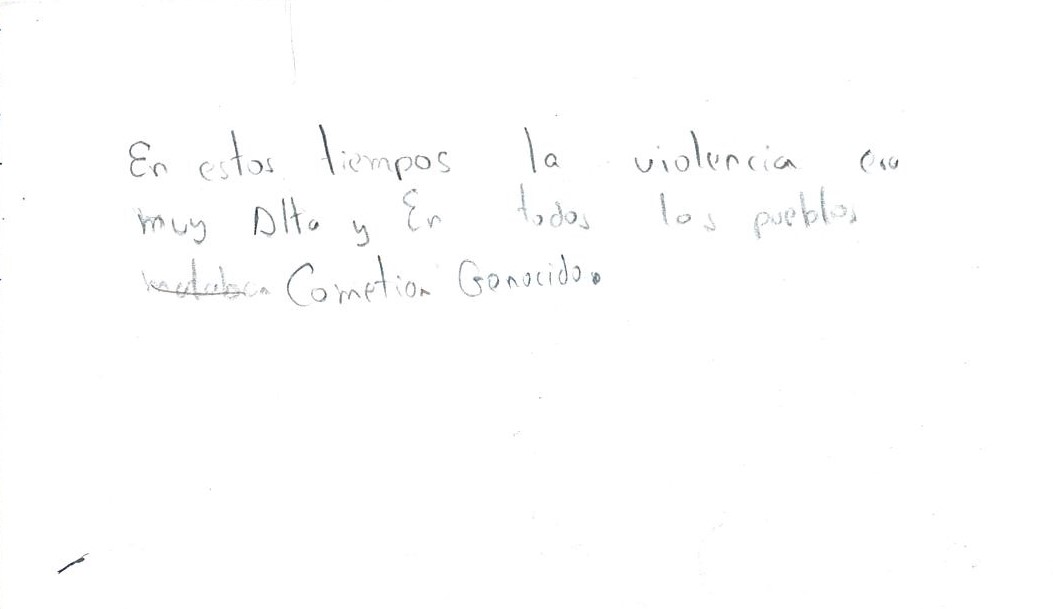 En estos tiempos la violencia era
muy Alta y En todos los pueblos
Cometian Genocido.